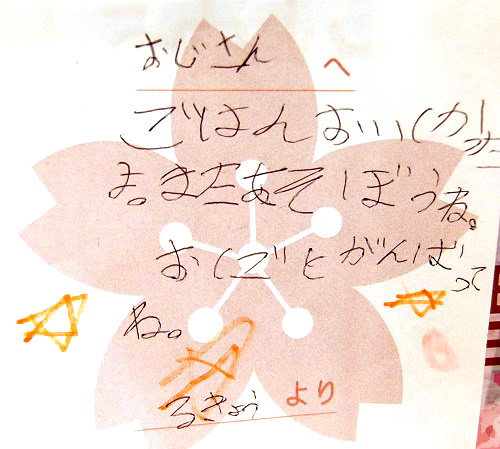 おじさん へ
ごはんおいしかった
よ。またあそぼうね。
おしごとがんばって
ね。
るきょう より